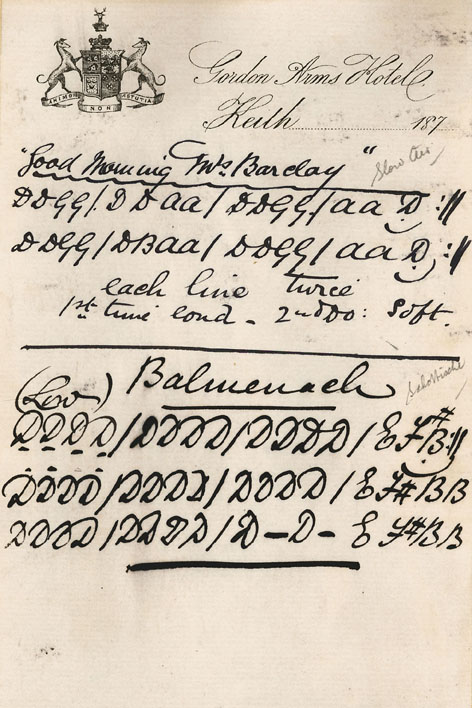 ANIMO NON ASTUTIA
Gordon Arms Hotel
Keith 187
"Good Morning Mrs Barclay"
Slow Air
DDGG / DDAA / DDGG / AA D :||
DDGG / DBAA / DDGG / AA D :||
each line twice
1st time loud - 2nd Do: Soft.
(Low) Balmenach
Schottische
DDDD / DDDD / DDDD / E F# B :||
DDDD / DDDD / DDDD / E F# B B
DDDD / DDDD / D - D - E F# B B